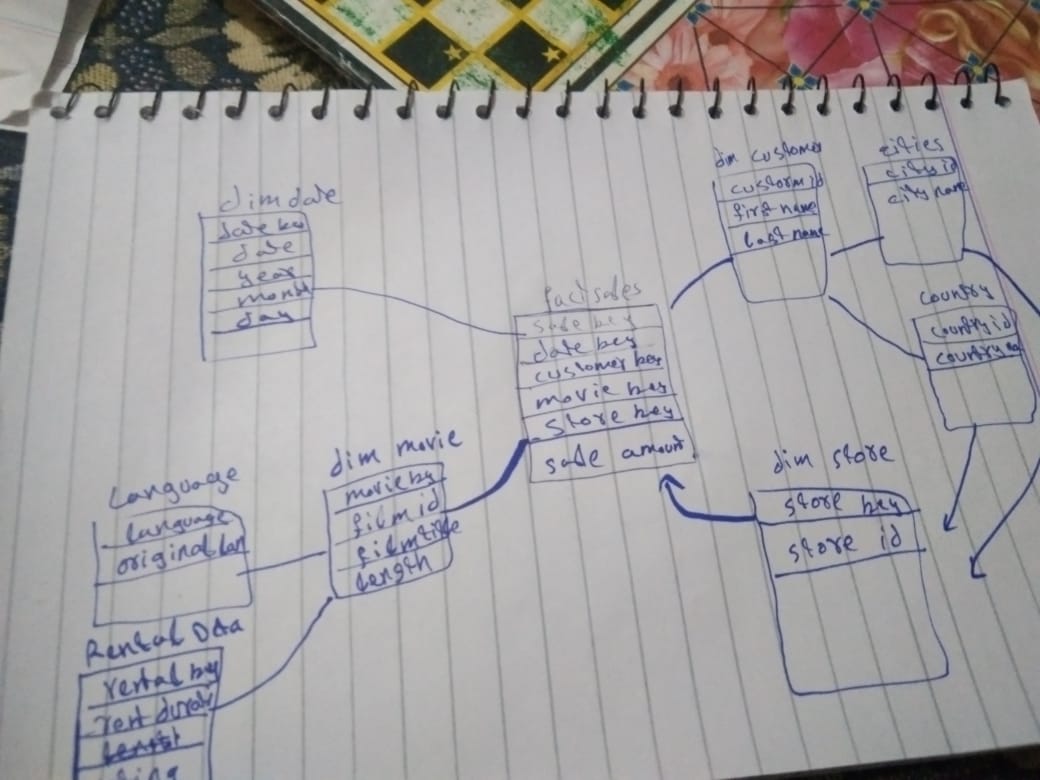 dim date
date key
date
year
month
day
fact sales
sale key
date key
customer key
movie key
store key
sale amount
dim customer
custom id
first name
last name
cities
city id
city name
country
country id
country na
dim store
store key
store id
dim movie
movie key
film id
film title
length
Language
language
original lan
Rental Data
rental key
rent durati